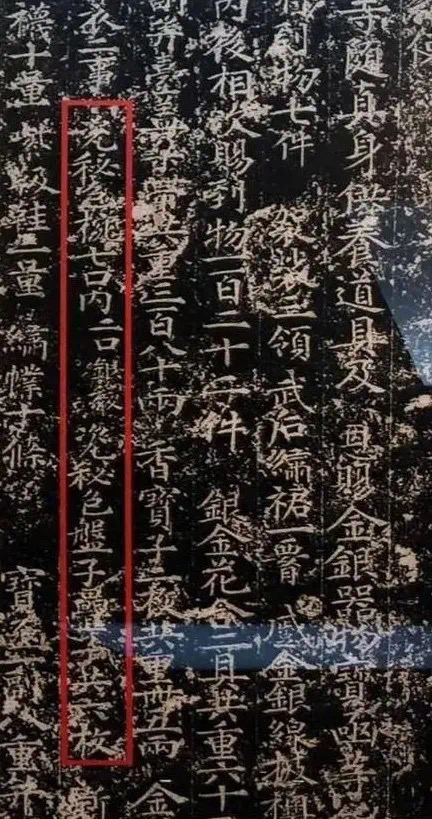 寺随真身供養道具及 恩賜金銀器物寶函等
到物七件 袈裟三領 武后繡裙一腰 蹙金銀線披襖
内後相次賜到物一百二十二件 銀金花合二具共重六十
副并臺蓋朶帶共重三百八十兩 香寶子二枚共重卌五兩 金
衣二事 瓷秘色椀七口内二口銀稜 瓷秘色盤子疊子共六枚 新
襪十量 紫靸鞋二量 繡幞十條 寶函一副八重并